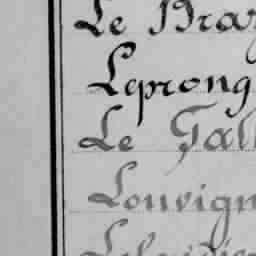 Le Braz
Leprong
Le Gall
Louvign